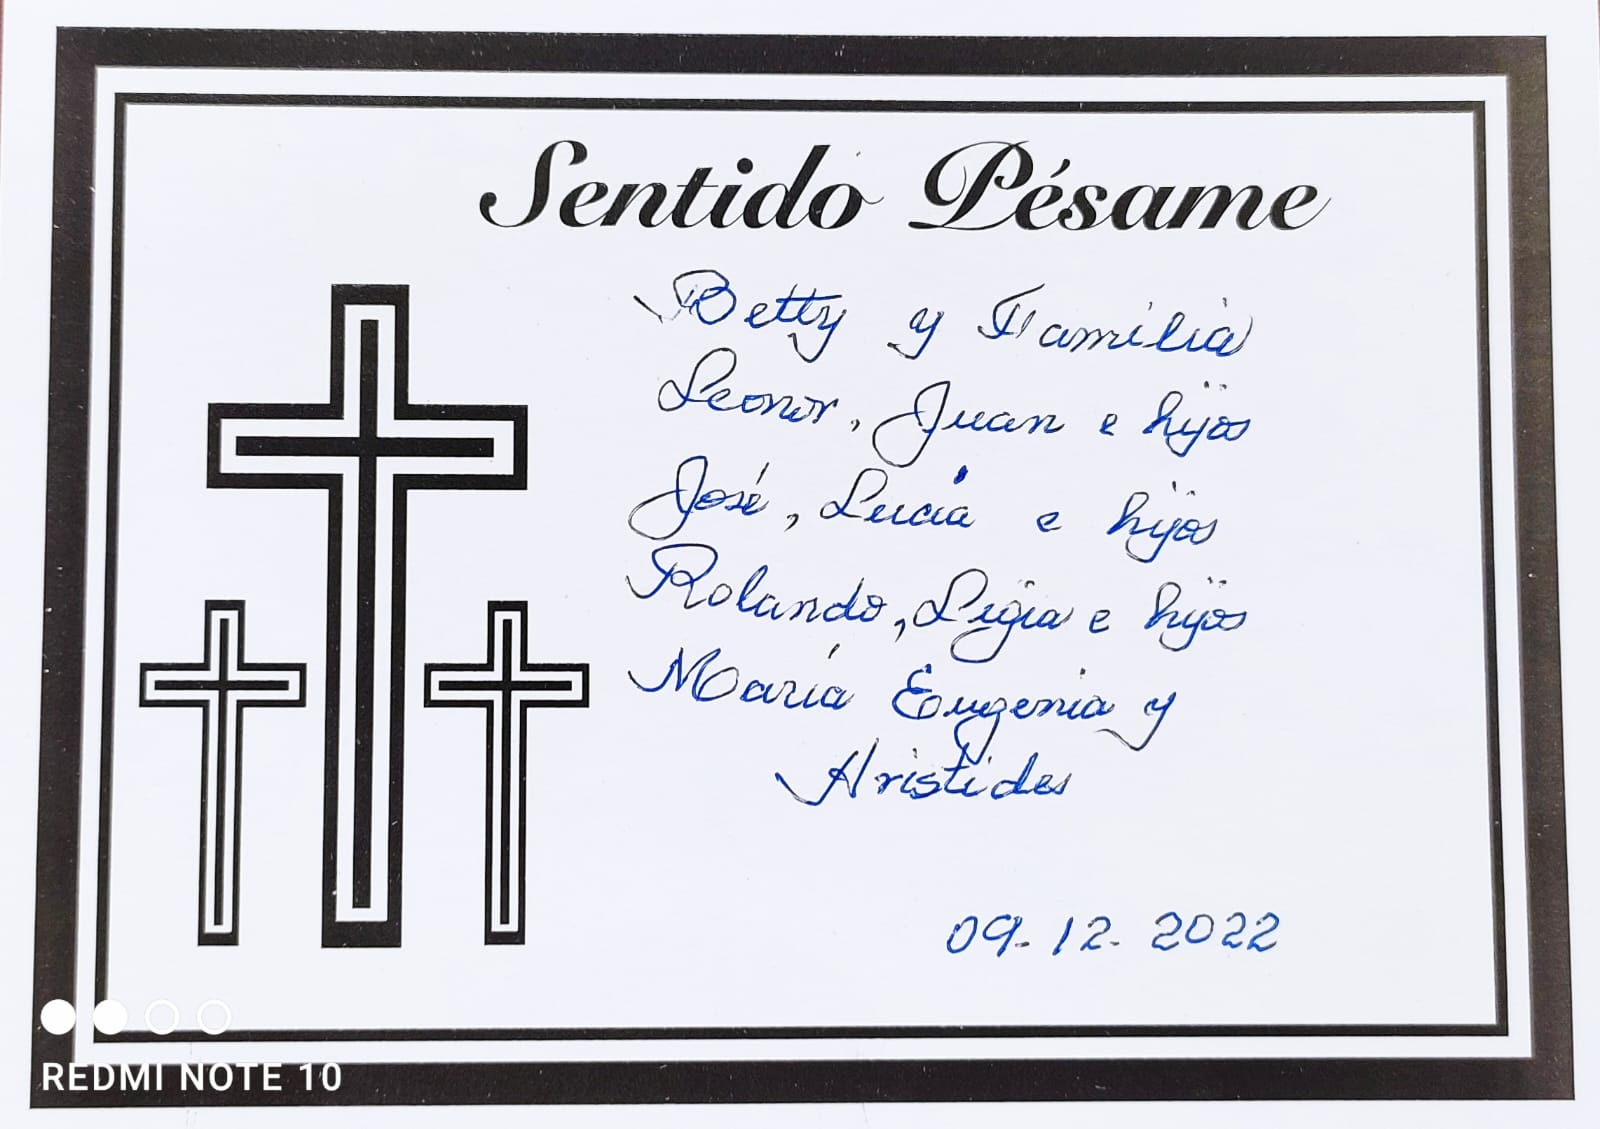 Sentido Pésame
Betty y Familia
Leonor, Juan e hijos
José, Lucía e hijos
Rolando, Ligia e hijos
María Eugenia y
Aristides
09-12-2022
REDMI NOTE 10